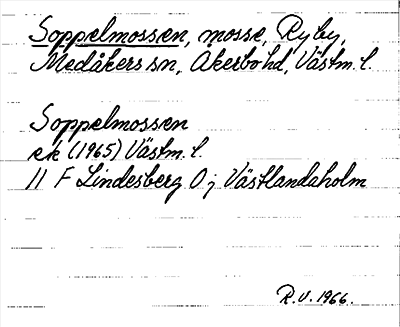 Soppelmossen, mosse, Ryby,
Medåkers sn, Åkerbo hd, Västm. l.
Soppelmossen
ek (1965) Västm. l.
11 F Lindesberg O j Västlandaholm
R.V. 1966.